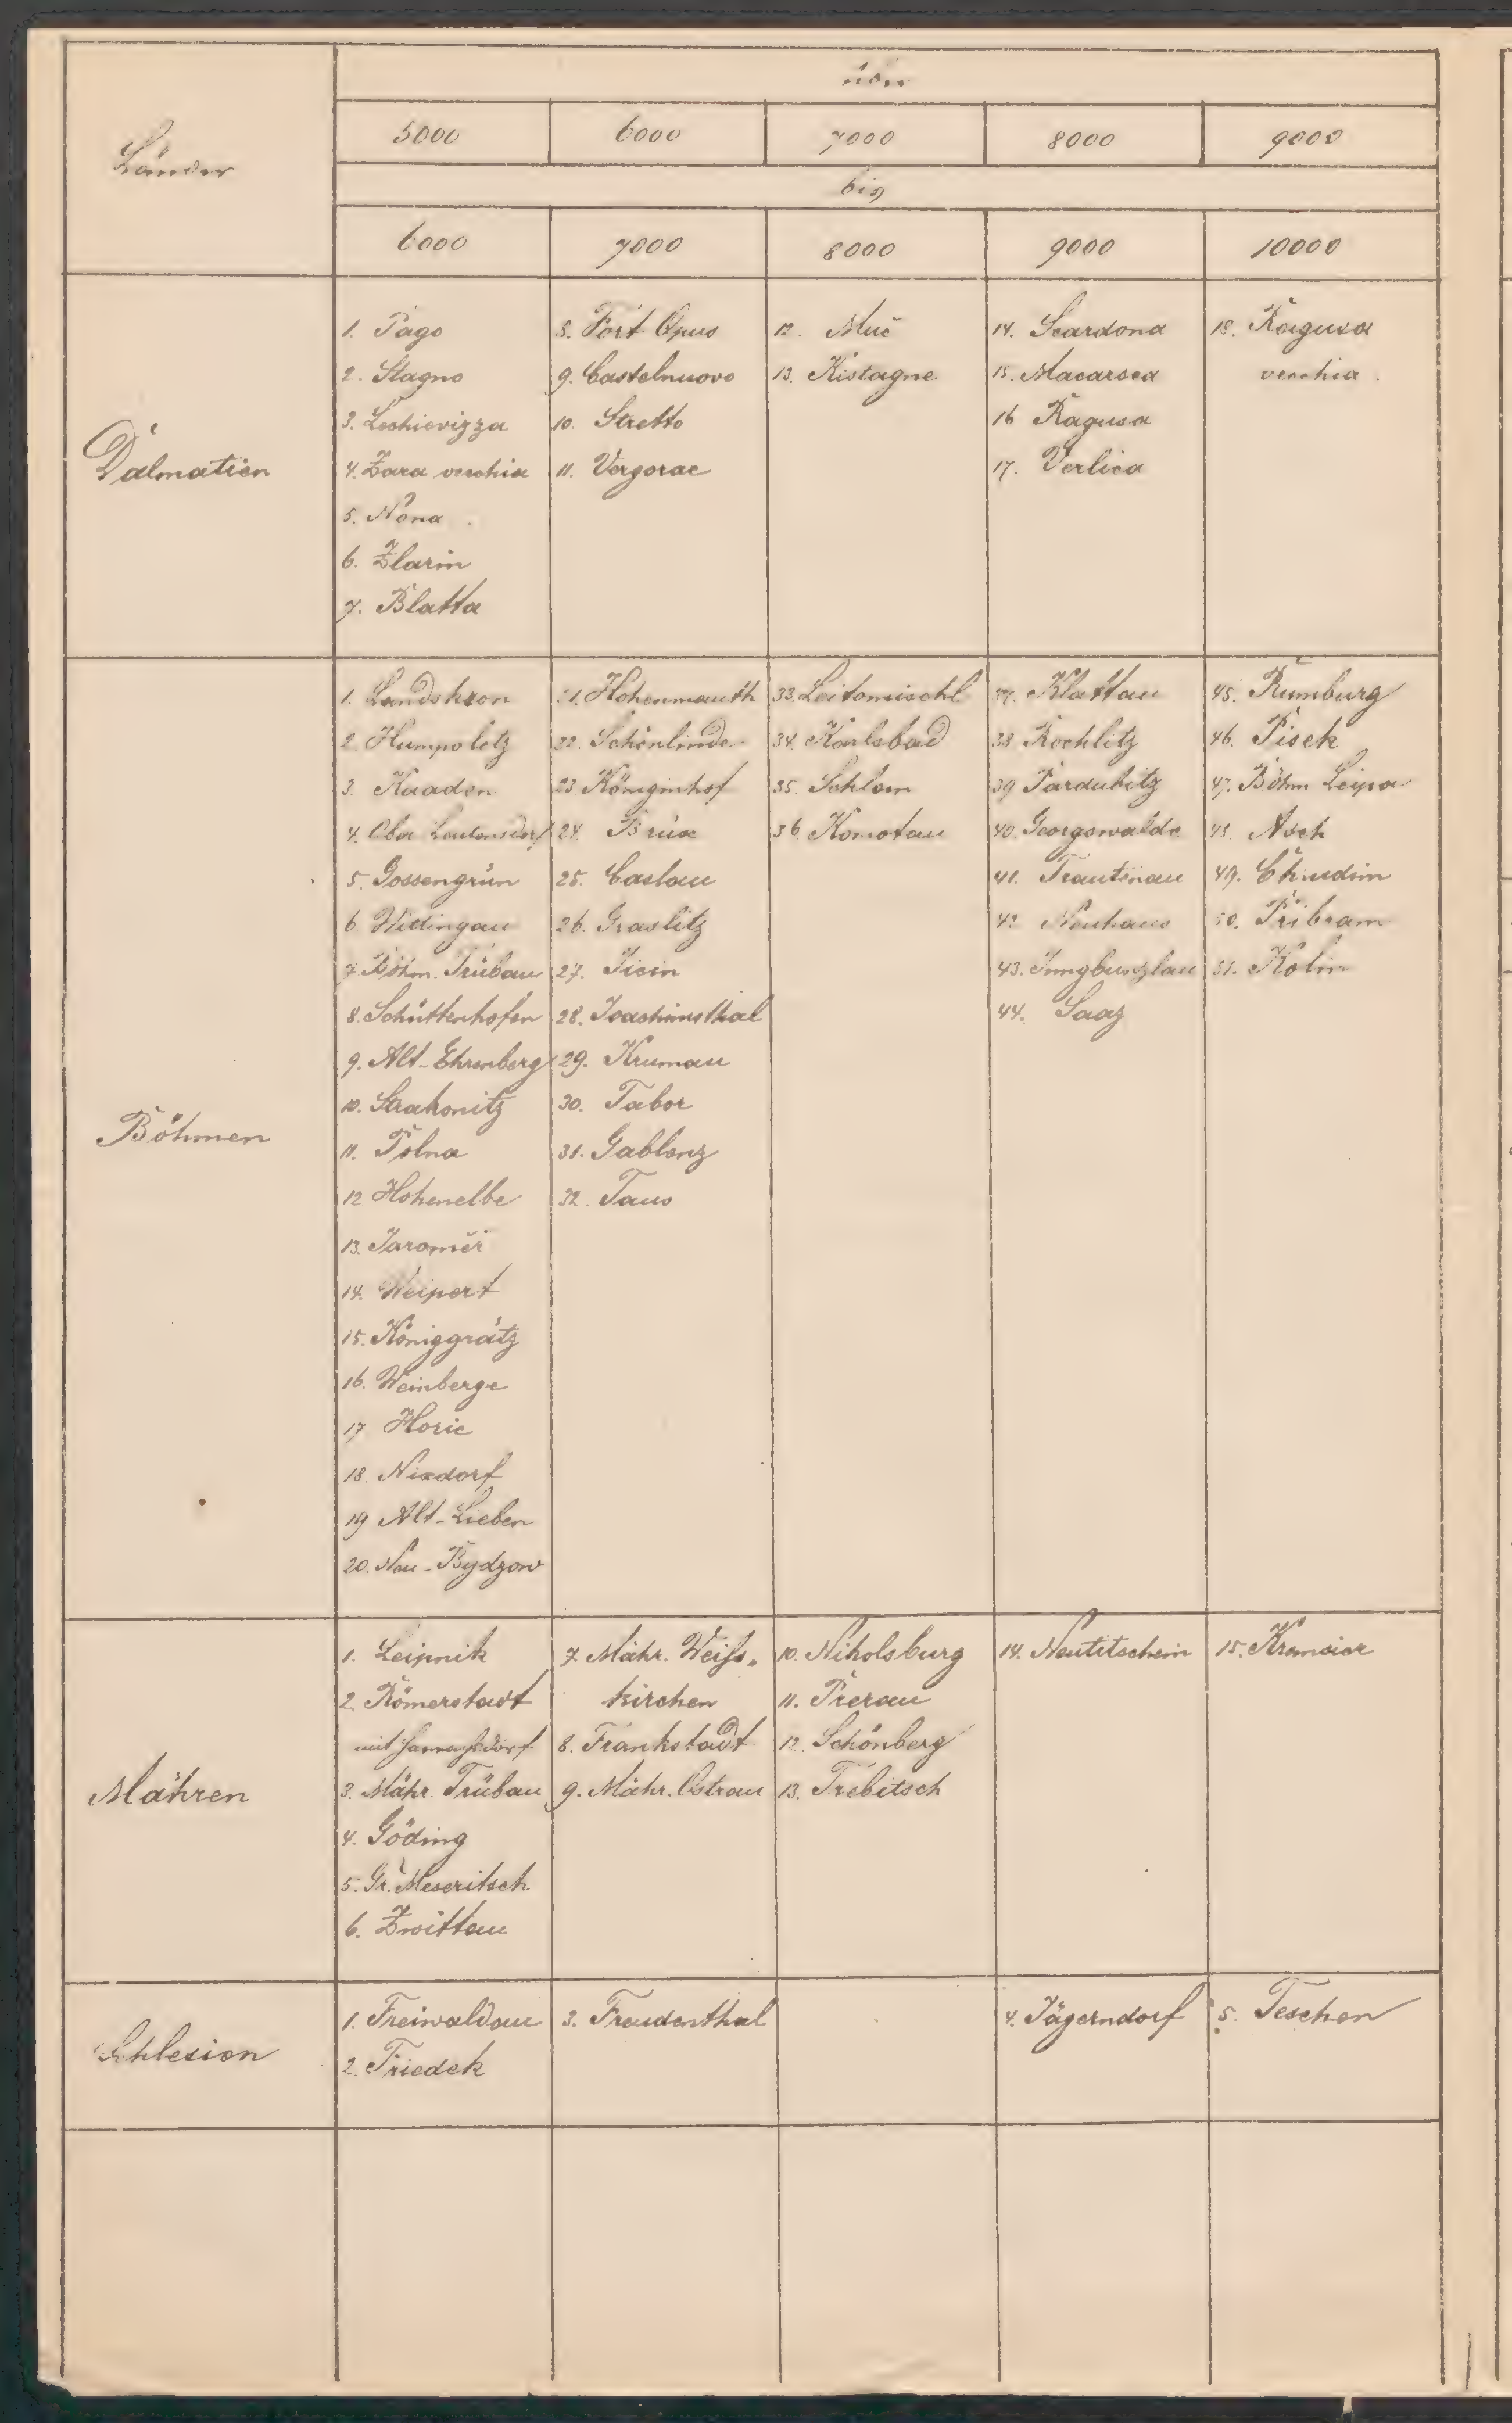 Länder
über
5000 6000 7000 8000 9000
bis
6000 7000 8000 9000 10000
Dalmatien
1. Pago
2. Stagno
3. Lechievizza
4. Zara vecchia
5. Nona
6. Zlarin
7. Blatta
8. Fort Opus
9. Castelnuovo
10. Stretto
11. Vergorac
12. Muč
13. Kistagne
14. Scardona
15. Macarsca
16 Ragusa
17. Verlica
18. Ragusa
vecchia
Böhmen
1. Landskron
2. Humpoletz
3. Kaaden
4. Ober Leutensdorf
5. Gossengrün
6. Wittingau
7. Böhm. Trübau
8. Schüttenhofen
9. Alt-Ehrenberg
10. Strakonitz
11. Polna
12 Hohenelbe
13. Jaroměř
14. Weipert
15. Königgrätz
16. Weinberge
17 Horic
18. Nixdorf
19 Alt-Lieben
20. Neu-Bydzow
21. Hohenmauth
22. Schönlinde
23. Königinhof
24 Brüx
25. Caslau
26. Graslitz
27. Jicin
28. Joachimsthal
29. Krumau
30. Tabor
31. Gablonz
32. Taus
33. Leitomischl
34. Karlsbad
35. Schlan
36. Komotau
37. Klattau
38. Rochlitz
39. Pardubitz
40. Georgswalde
41. Trautenau
42 Neuhaus
43. Jungbunzlau
44. Saaz
45. Rumburg
46. Pisek
47. Böhm Leipa
48. Asch
49. Chrudim
50. Pribram
51. Kolin
Mähren
1. Leipnik
2. Römerstadt
mit Janowsdorf
3. Mähr. Trübau
4. Göding
5. Gr. Meseritsch
6. Zwittau
7. Mähr. Weiß-
kirchen
8. Frankstadt
9. Mähr. Ostrau
10. Nikolsburg
11. Prerau
12. Schönberg
13. Trebitsch
14. Neutitschein
15. Kremsier
Schlesien
1. Freiwaldau
2. Friedek
3. Freudenthal
4. Jägerndorf
5. Teschen